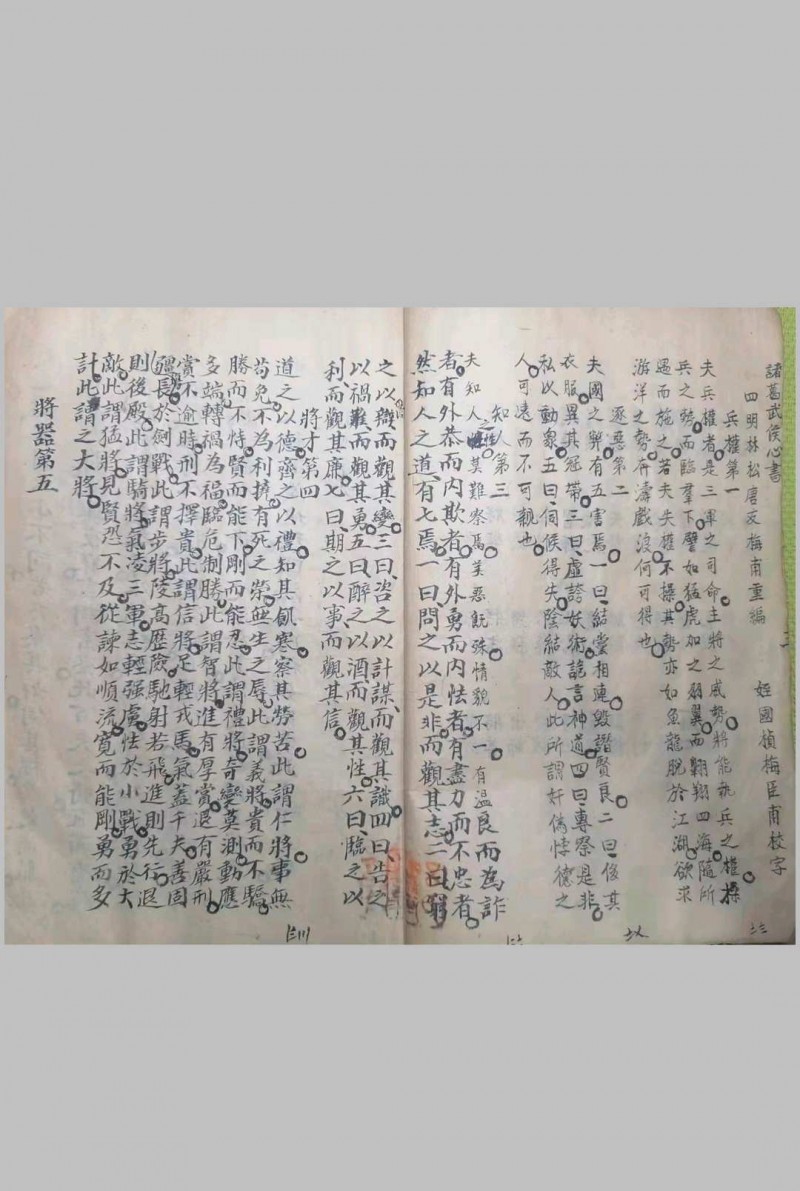 諸葛武侯心書
四明林松唐友梅甫重編　姪國楨梅臣甫校字
兵權第一
夫兵權者是三軍之司命主將之威勢將能執兵之權操
兵之勢而臨羣下譬如猛虎加之羽翼而翱翔四海隨所
遇而施之若夫失權不操其勢亦如魚龍脫於江湖欲求
游洋之勢奔濤戲浪何可得也
逐惡第二
夫國之弊有五害焉一曰結黨相連毀譖賢良二曰侈其
衣服異其冠帶三曰虛誇妖術詭言神道四曰專察是非
私以動衆五曰伺候得失陰結敵人此所謂奸偽悖德之
人可遠而不可親也
知人第三
夫知人之性莫難察焉美惡旣殊情貌不一有溫良而為詐
者有外恭而內欺者有外勇而內怯者有盡力而不忠者
然知人之道有七焉一曰問之以是非而觀其志二曰窮
之以辭而觀其變三曰咨之以計謀而觀其識四曰告之
以禍難而觀其勇五曰醉之以酒而觀其性六曰臨之以
利而觀其廉七曰期之以事而觀其信
將才第四
道之以德齊之以禮知其飢寒察其勞苦此謂仁將事無
苟免不為利撓有死之榮無生之辱此謂義將貴而不驕
勝而不恃賢而能下剛而能忍此謂禮將奇變莫測動應
多端轉禍為福臨危制勝此謂智將進有厚賞退有嚴刑
賞不逾時刑不擇貴此謂信將足輕戎馬氣蓋千夫善固
疆長於劍戰此謂步將陵高歷險馳射若飛進則先行退
則後殿此謂騎將氣凌三軍志輕强虜怯於小戰勇於大
敵此謂猛將見賢恐不及從諫如順流寬而能剛勇而多
計此謂之大將
將器第五